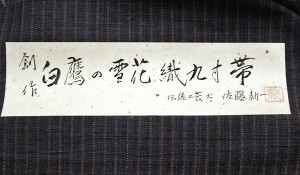 創作
白鷹の雪花織九寸帯
伝統工芸士 佐藤新一